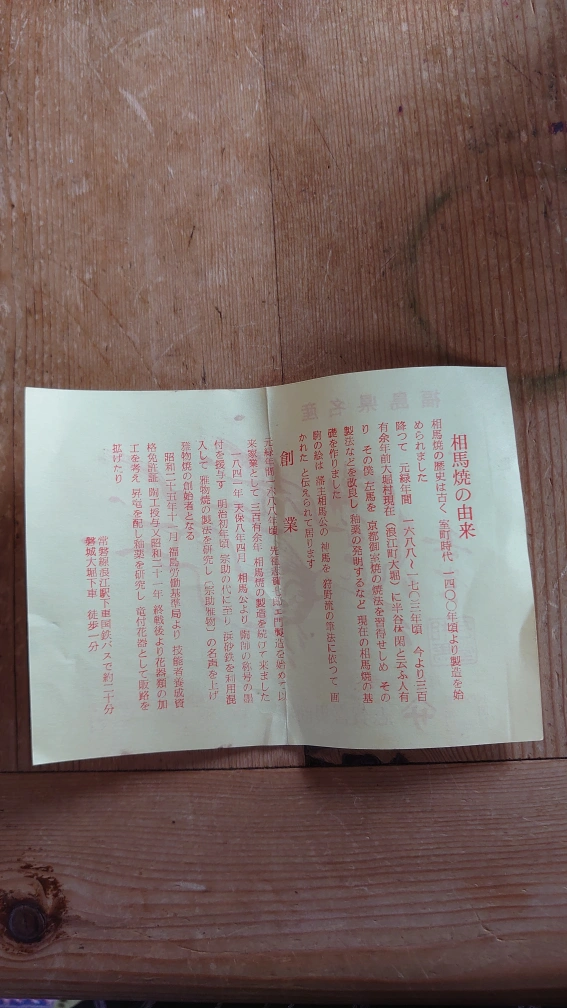 相馬焼の由来
相馬焼の歴史は古く 室町時代、一四〇〇年頃より製造を始
められました
降つて 元禄年間 一六八八〜一七〇三年頃 今より三百
有余年前大堀村現在(浪江町大堀)に半谷休閑と云ふ人有
り その僕 左馬を 京都御室焼の焼法を習得せしめ その
製法などを改良し 釉薬の発明するなど 現在の相馬焼の基
礎を作りました
駒の絵は 藩主相馬公の 神馬を 狩野流の筆法に依つて 画
かれた と伝えられて居ります
創業
元禄年間一六八八年頃 製造を始めて以
来家業として 三百有余年 相馬焼の製造を続けて来ました
一八四一年 天保八年四月 相馬公より 陶師の称号の墨
付を授与す 明治初年頃 宗助の代に至り 浜砂鉄を利用混
入して 雅物焼の製法を研究し(宗助雅物)の名声を上げ
雅物焼の創始者となる
昭和二十五年十一月 福島労働基準局より 技能者養成資
格免許証 陶工授与又昭和二十一年 終戦後より花器類の加
工を考え 昇竜を配し釉薬を研究し 竜付花器として販路を
拡げたり
常磐線浪江駅下車国鉄バスで約二十分
磐城大堀下車 徒歩一分
福島県名産